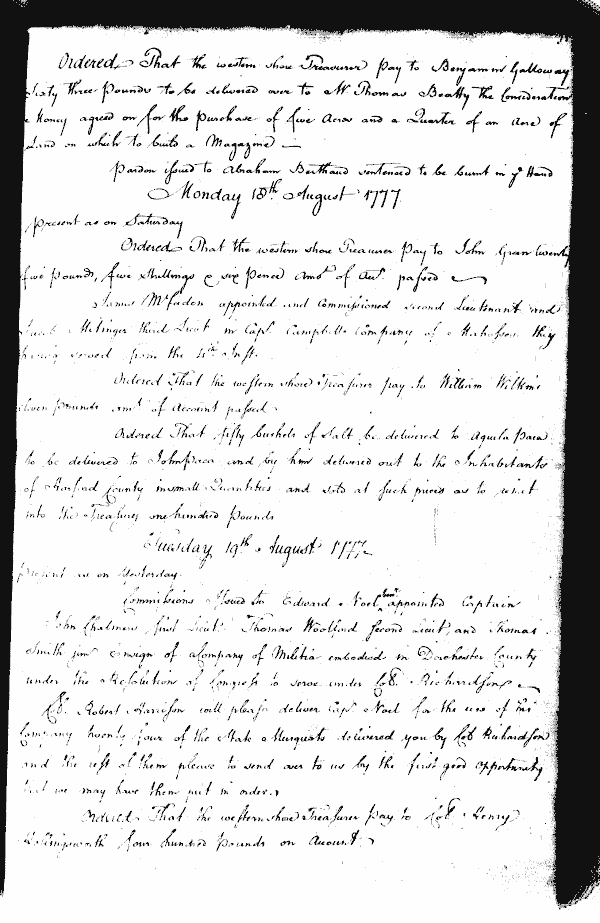 Ordered That the western shore Treasurer pay to Benjamin Galloway
Sixty three pounds to be delivered over to Mr Thomas Beatty the Consideration
Money agreed on for the purchase of five Acres and a Quarter of an Acre of
Land on which to build a Magazine
Pardon issued to Abraham Berthaud sentenced to be burnt in ye Hand
Monday 18th August 1777
Present as on Saturday
Ordered That the western shore Treasurer pay to John Green twenty
five pounds, five Shillings & six pence amt of acct. passed
James McFadon appointed and Commissioned second Lieutenant and
Jacob third Lieut in Capt. Campbells Company of they
having served from the Inst.
Ordered That the western shore Treasurer pay to William Wilkins
eleven pounds amt of Account passed
Ordered That fifty bushels of Salt be delivered to Aquila Paca
to be delivered to John Paca and by him delivered out to the Inhabitants
of Harford County in small Quantities and sold at such prices as to
into the Treasury one hundred pounds
Tuesday 19th August 1777
Present as on Yesterday
Commissions Issued to Edward Noel appointed Captain
John Chalmers first Lieut. Thomas Woolford second Lieut, and Thomas
Smith junr Ensign of a Company of Militia embodied in Dorchester County
under the Resolutions of Congress to serve under Col. Richardson
Col. Robert Harrison will please deliver Capt. Noel for the use of his
Company twenty four of the State Musquets delivered you by Col. Richardson
and the rest of them please to send over to us by the first good opportunity
that we may have them put in order.
Ordered That the western shore Treasurer pay to Col. Henry
Hollingsworth four hundred pounds on Account